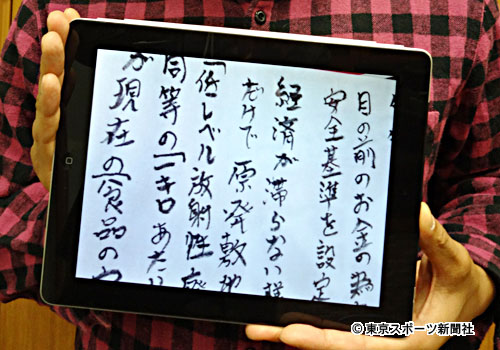 目の前のお金の為
安全基準を設定
経済が滞らない様
だけで原発敷地
「低レベル放射性廃
同等の「一キロあたり
が現在の「食品の
©東京スポーツ新聞社